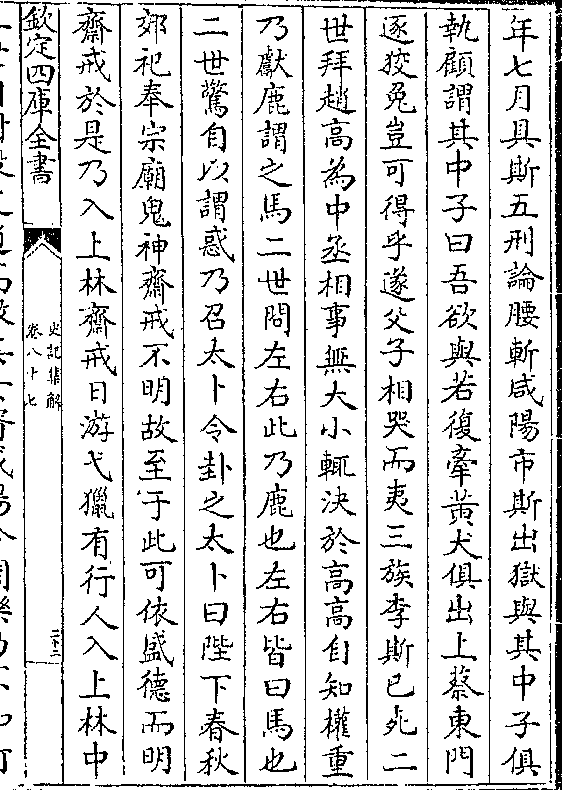 年七月具斯五刑論腰斬咸陽市斯出獄與其中子俱
執顧謂其中子曰吾欲與若復牽黃犬俱出上蔡東門
逐狡兔豈可得乎遂父子相哭而夷三族李斯已死二
世拜趙高為中丞相事無大小輒決於高高自知權重
乃獻鹿謂之馬二世問左右此乃鹿也左右皆曰馬也
二世驚自以謂惑乃召太卜令卦之太卜曰陛下春秋
郊祀奉宗廟鬼神齋戒不明故至于此可依盛德而明
齋戒於是乃入上林齋戒日游弋獵有行人入上林中
欽定四庫全書
史記集解
卷八十七